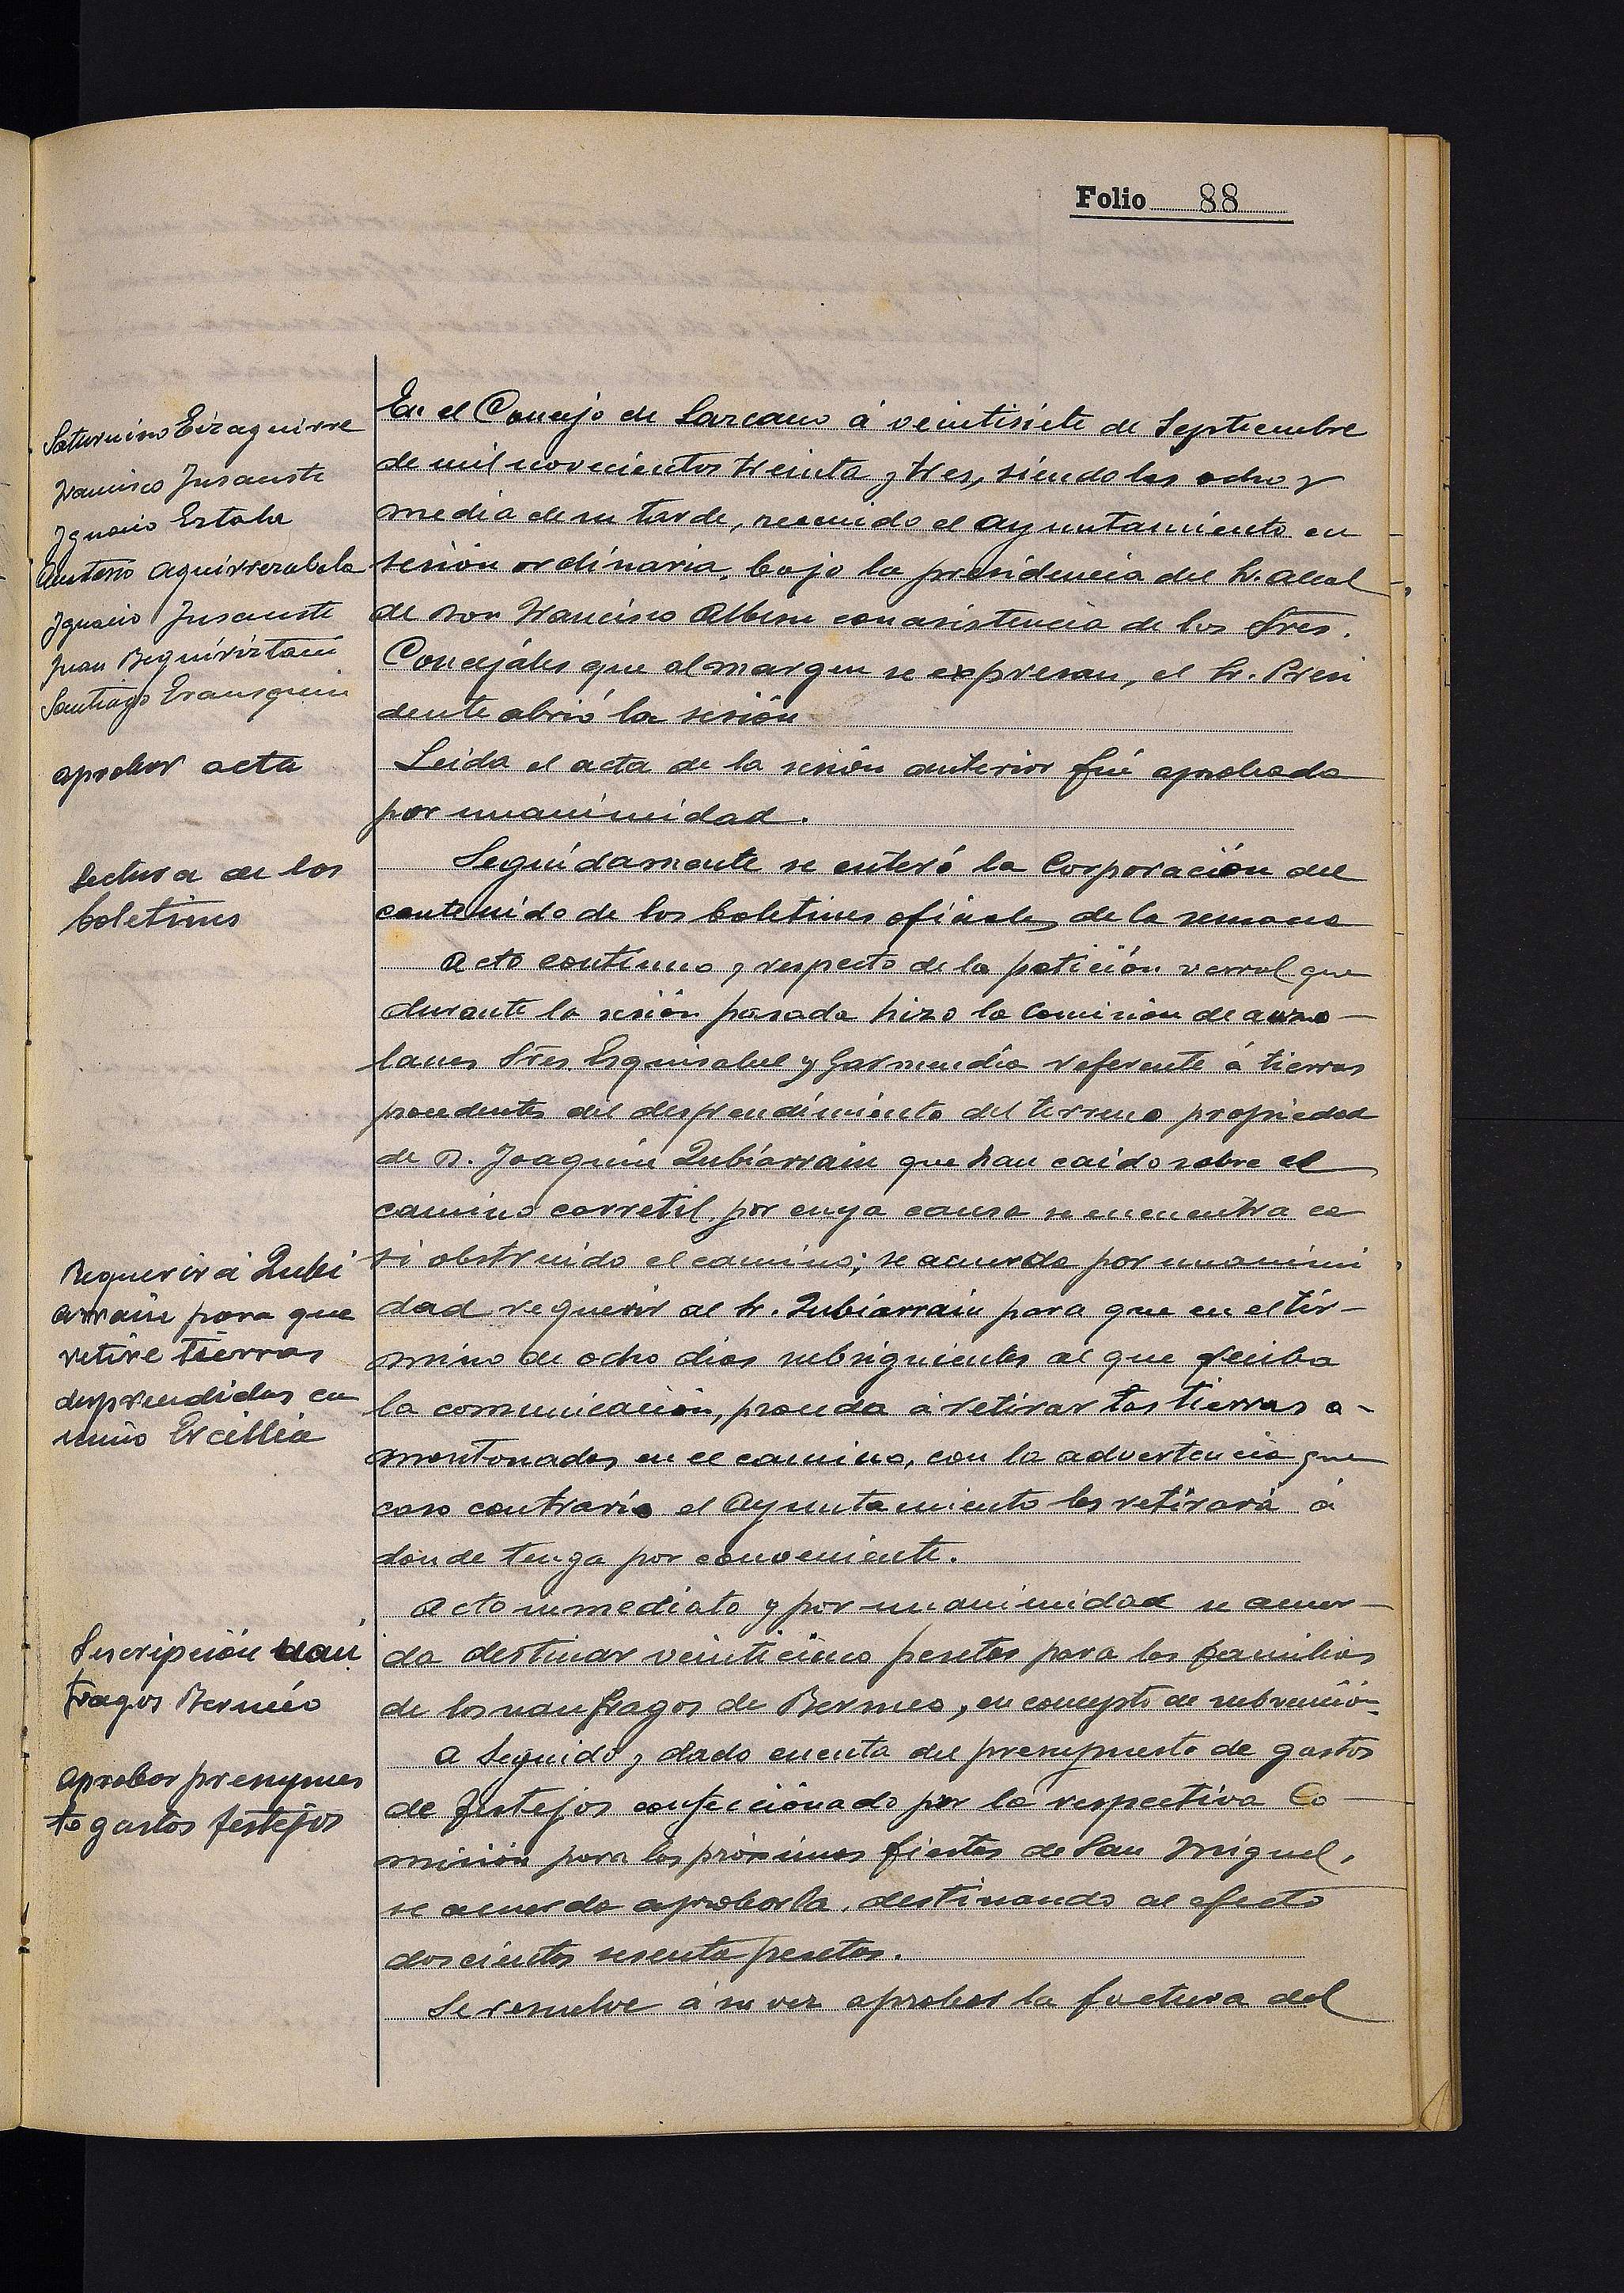 Folio 88
Saturnino Eizaguirre
Francisco Insausti
Ignacio Estala
Antero Aguirrezabala
Ignacio Insausti
Juan Beguiristain
Santiago Erausquin
En el Concejo de Lazcano á veintisiete de Septiembre
de mil novecientos treinta y tres, siendo las ocho y
media de su tarde, reunido el Ayuntamiento en
sesión ordinaria, bajo la presidencia del Sr. Alcal
de Don Francisco Albisu con asistencia de los Sres.
Concejáles que al margen se expresan, el Sr. Presi
dente abrió la sesión
aprobar acta
Leida el acta de la sesión anterior fué aprobada
por unanimidad.
Lectura de los
boletines
Seguidamente se enteró la Corporación del
contenido de los boletines oficiales de la semana
Acto continuo y respecto de la petición verval que
durante la sesión pasada hizo la Comision de auzo-
lanes Sres Esquisabel y Garmendia referente á tierras
procedentes del desprendimiento del terreno propiedad
de D. Joaquin Zubiarrain que han caido sobre el
camino carretil, por cuya causa se encuentra ca
si obstruido el camino; se acuerda por unanimi
Requerir á Zubi
arrain para que
retire tierras
desprendidas ca
mino Ercillia
dad requerir al Sr. Zubiarrain para que en el tér-
mino de ocho dias subsiguientes al que reciba
la comunicación, proceda á retirar las tierras a-
montonadas en el camino, con la advertencia que
caso contrario el Ayuntamiento las retirará á
donde tenga por conveniente.
Acto inmediato y por unanimidad se acuer-
Suscripción nau
fragos Bermeo
da destinar veinticinco pesetas para las familias
de los naufragos de Bermeo, en concepto de subvención.
Aprobar presupues
to gastos festejos
A seguido y dado cuenta del presupuesto de gastos
de festejos confeccionado por la respectiva Co-
misión para las próximas fiestas de San Miguel,
se acuerda aprobarla, destinando al efecto
doscientas sesenta pesetas.
Se resuelve á su vez aprobar la factura del